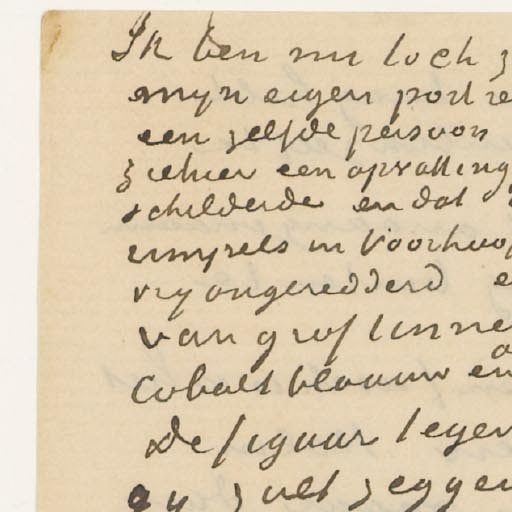 Ik ben nu toch z
mijn eigen portre
een zelfde persoon
ziehier een opvatting
schilderde en dat
rimpels in Voorhoof
vry ongeredderd e
van grof linne
Cobalt blaauw en
De figuur tegen
gy zult zeggen